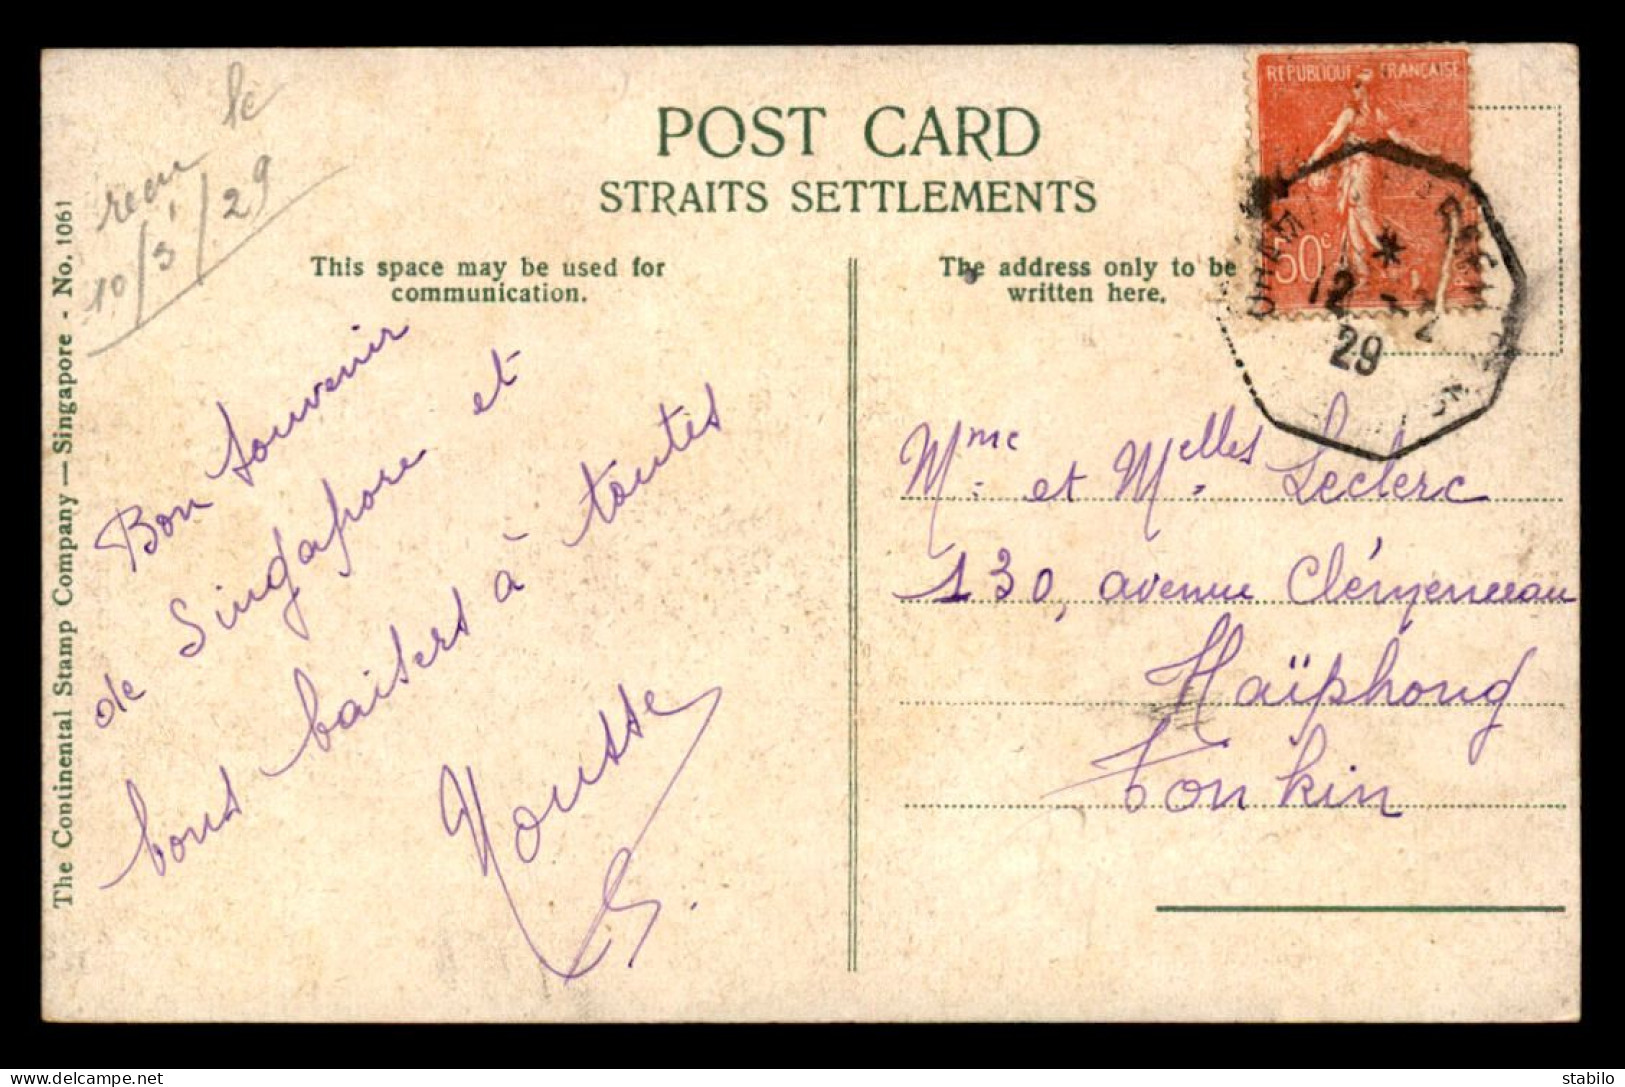 POST CARD
STRAITS SETTLEMENTS
This space may be used for
communication.
The address only to be
written here.
REPUBLIQUE FRANÇAISE
50c
*
12 -2
29
reçu le
10/3/29
Bon souvenir
de Singapore et
bons baisers à toutes
Mousse
Mme et Melles Leclerc
130, avenue Clémenceau
Haïphong
Tonkin
The Continental Stamp Company — Singapore - No. 1061
stabilo
delcampe.net